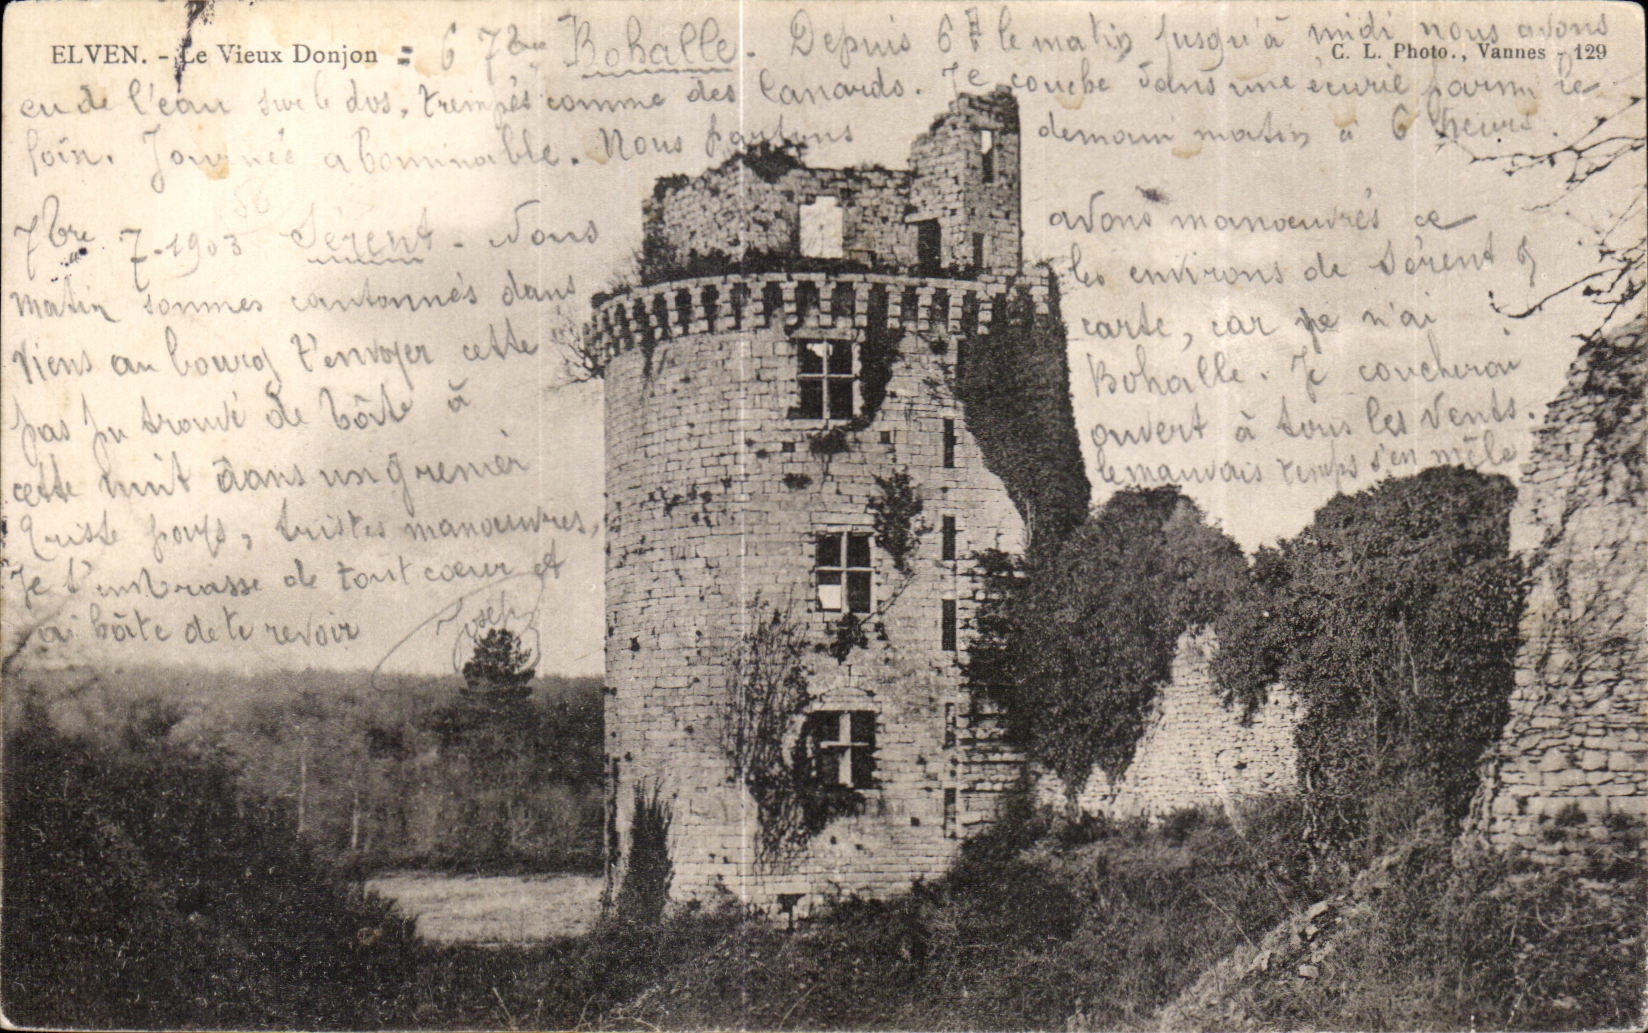 ELVEN. - Le Vieux Donjon = 6 7bre Bohalle. Depuis 6h le matin jusqu'à midi nous avons
C. L. Photo., Vannes - 129
eu de l'eau sur le dos, trempés comme des Canards. Je couche dans une écurie parmi le
foin. Journée abominable. Nous partons demain matin à 6 heures.
7bre 7-1903 Sérent. Nous avons manoeuvrés ce
matin sommes cantonnés dans les environs de Sérent &
viens au bourg t'envoyer cette carte, car je n'ai
pas pu trouvé de bôite à Bohalle. Je coucherai
cette nuit dans un grenier ouvert à tous les vents.
Triste pays, tristes manoeuvres, le mauvais temps s'en mêle
Je t'embrasse de tout coeur et
ai hâte de te revoir Joseph